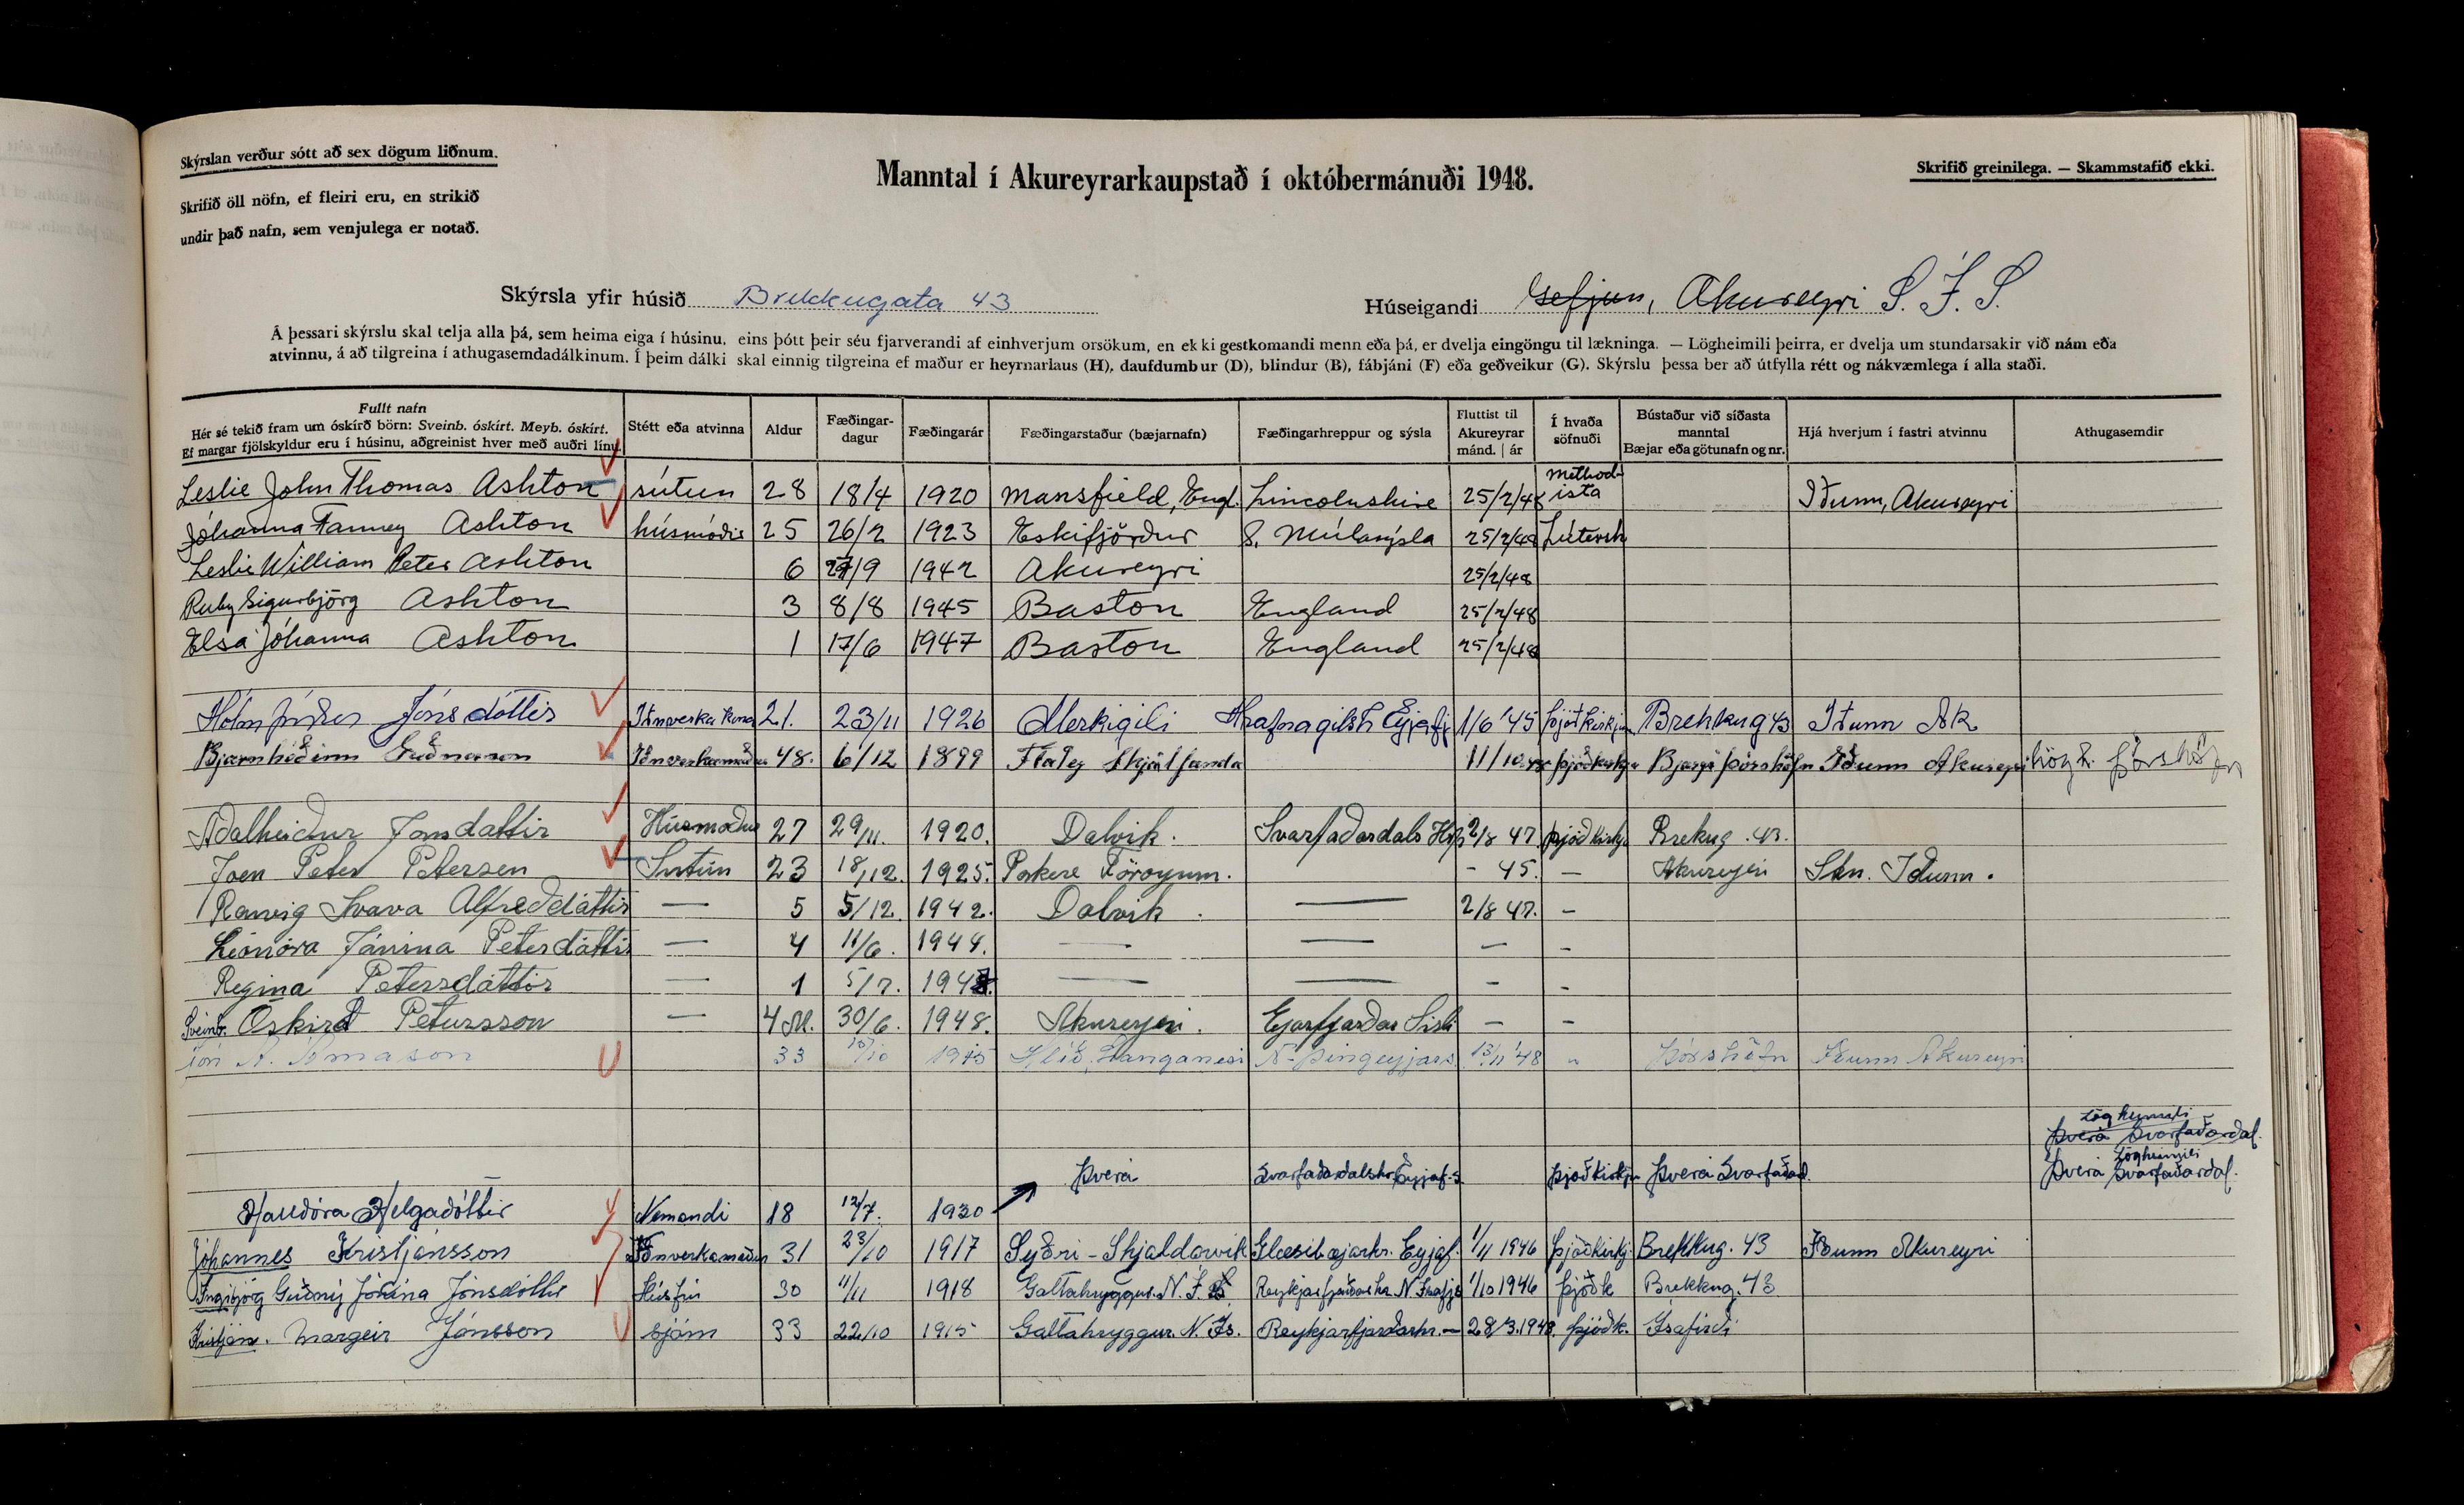 Skýrslan verður sótt að sex dögum liðnum.
Skrifið öll nöfn, ef fleiri eru, en strikið
undir það nafn, sem venjulega er notað.
Manntal í Akureyrarkaupstað í októbermánuði 1948.
Skrifið greinilega. — Skammstafið ekki.
Skýrsla yfir húsið Brekkugata 43
Húseigandi Gefjun, Akureyri S.Í.S.
Á þessari skýrslu skal telja alla þá, sem heima eiga í húsinu, eins þótt þeir séu fjarverandi af einhverjum orsökum, en ekki gestkomandi menn eða þá, er dvelja eingöngu til lækninga. — Lögheimili þeirra, er dvelja um stundarsakir við nám eða
atvinnu, á að tilgreina í athugasemdadálkinum. Í þeim dálki skal einnig tilgreina ef maður er heyrnarlaus (H), daufdumbur (D), blindur (B), fábjáni (F) eða geðveikur (G). Skýrslu þessa ber að útfylla rétt og nákvæmlega í alla staði.
Fullt nafn
Hér sé tekið fram um óskírð börn: Sveinb. óskírt. Meyb. óskírt.
Ef margar fjölskyldur eru í húsinu, aðgreinist hver með auðri línu.
Stétt eða atvinna
Aldur
Fæðingar-
dagur
Fæðingarár
Fæðingarstaður (bæjarnafn)
Fæðingarhreppur og sýsla
Fluttist til
Akureyrar
mánd. | ár
Í hvaða
söfnuði
Bústaður við síðasta
manntal
Bæjar eða götunafn og nr.
Hjá hverjum í fastri atvinnu
Athugasemdir
Leslie John Thomas Ashton sútun 28 18/4 1920 Mansfield, Engl. Lincolnshire 25/2/48 Method-ista Iðunn, Akureyri
Jóhanna Fanney Ashton húsmóðir 25 26/2 1923 Eskifjörður S. Múlasýsla 25/2/48 Lútersk
Leslie William Peter Ashton 6 /9 1942 Akureyri 25/2/48
Ruby Sigurbjörg Ashton 3 8/8 1945 Baston England 25/2/48
Elsa Jóhanna Ashton 1 17/6 1947 Baston England 25/2/48
Hólmfríður Jónsdóttir Iðnverkakona 21. 23/11 1926 Merkigili Hrafnagilsh Eyjafj 1/6 '45 Þjóðkirkju Brekkug 43 Iðunn Ak
Bjarnhéðinn Guðnason Iðnverkamaður 48. 6/12 1899 Flatey Skjálfanda 11/10 Þjóðkirkju Bjargi Þórshöfn Iðunn Akureyri lögh. Þórshöfn
Aðalheiður Jonsdattir Húsmoður 27 29/11. 1920. Dalvik. Svarfaðardals Hrp 2/8 47. þjóðkirkju Brekug. 43.
Joen Peter Petersen Sutun 23 18/12. 1925. Porkere Föroyum. - 45. — Akureyri Skn. Iðunn.
Ranvig Svava Alfreðdáttir — 5 5/12. 1942. Dalvik. — 2/8 47. -
Leónóra Jánina Petersdáttir — 4 11/6. 1944. — — — -
Regina Petersdáttir — 1 5/7. 194 — — - -
Sveinb. Óskírt Petursson — 4 M. 30/6. 1948. Akureyri. Ejarfjarðar Sisli — -
Jón A. 33 10 1915 Hlíð, Langanesi N-Þingeyjars. 13/11 '48 " Þórshöfn Iðunn Akureyri
Lögheimili
Þverá Svarfaðardal.
Þverá Svarfaðardalshr. Eyjaf.s. Þjóðkirkju Þverá Svarfaðard. Lögheimili
Þverá Svarfaðardal.
Halldóra Helgadóttir Nemandi 18 12/7. 1930
Jóhannes Kristjánsson Iðnverkamaður 31 23/10 1917 Syðri-Skjaldarvík Glæsibæjarhr. Eyjaf. 1/11 1946 Þjóðkirkj. Brekkug. 43 Iðunn Akureyri
Ingibjörg Guðný Jóhána Jónsdóttir Húsfrú 30 11/11 1918 Galtahryggur. N. Í. Reykjarfjarðarhr. N Ísafjs 1/10 1946 Þjóðk Brekkug. 43
Kristján. Margeir Jónsson sjóm 33 22/10 1915 Galtahryggur. N. Ís. Reykjarfjarðarhr. — 28/3.1948. Þjóðk. Ísafirði